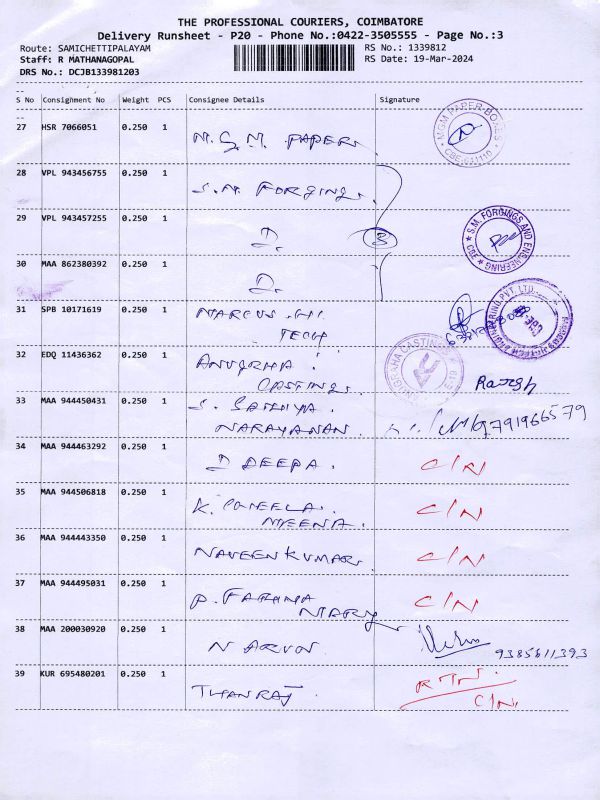 THE PROFESSIONAL COURIERS, COIMBATORE
Delivery Runsheet - P20 - Phone No.:0422-3505555 - Page No.:3
Route: SAMICHETTIPALAYAM
RS No.: 1339812
Staff: R MATHANAGOPAL
RS Date: 19-Mar-2024
DRS No.: DCJB133981203
S No Consignment No Weight PCS Consignee Details Signature
27 HSR 7066051 0.250 1 M.G.M. PAPER
MGM PAPER BOXES
28 VPL 943456755 0.250 1 S.M. FORGING
29 VPL 943457255 0.250 1 D. 3
S.M. FORGINGS AND ENGINEERING
30 MAA 862380392 0.250 1 D.
31 SPB 10171619 0.250 1 MARCUS HI
TECH
32 EDQ 11436362 0.250 1 ANUGRHA
CASTINGS
ANUGRAHA CASTINGS
Ramesh
33 MAA 944450431 0.250 1 S. SATHIYA
NARAYANAN
9791966579
34 MAA 944463292 0.250 1 D DEEPA. C/N
35 MAA 944506818 0.250 1 K.
MEENA. C/N
36 MAA 944443350 0.250 1 NAVEEN KUMAR. C/N
37 MAA 944495031 0.250 1 P. FATHIMA
MARY C/N
38 MAA 200030920 0.250 1 N ARUN
9385611393
39 KUR 695480201 0.250 1 THANRAJ RTN.
C/N.